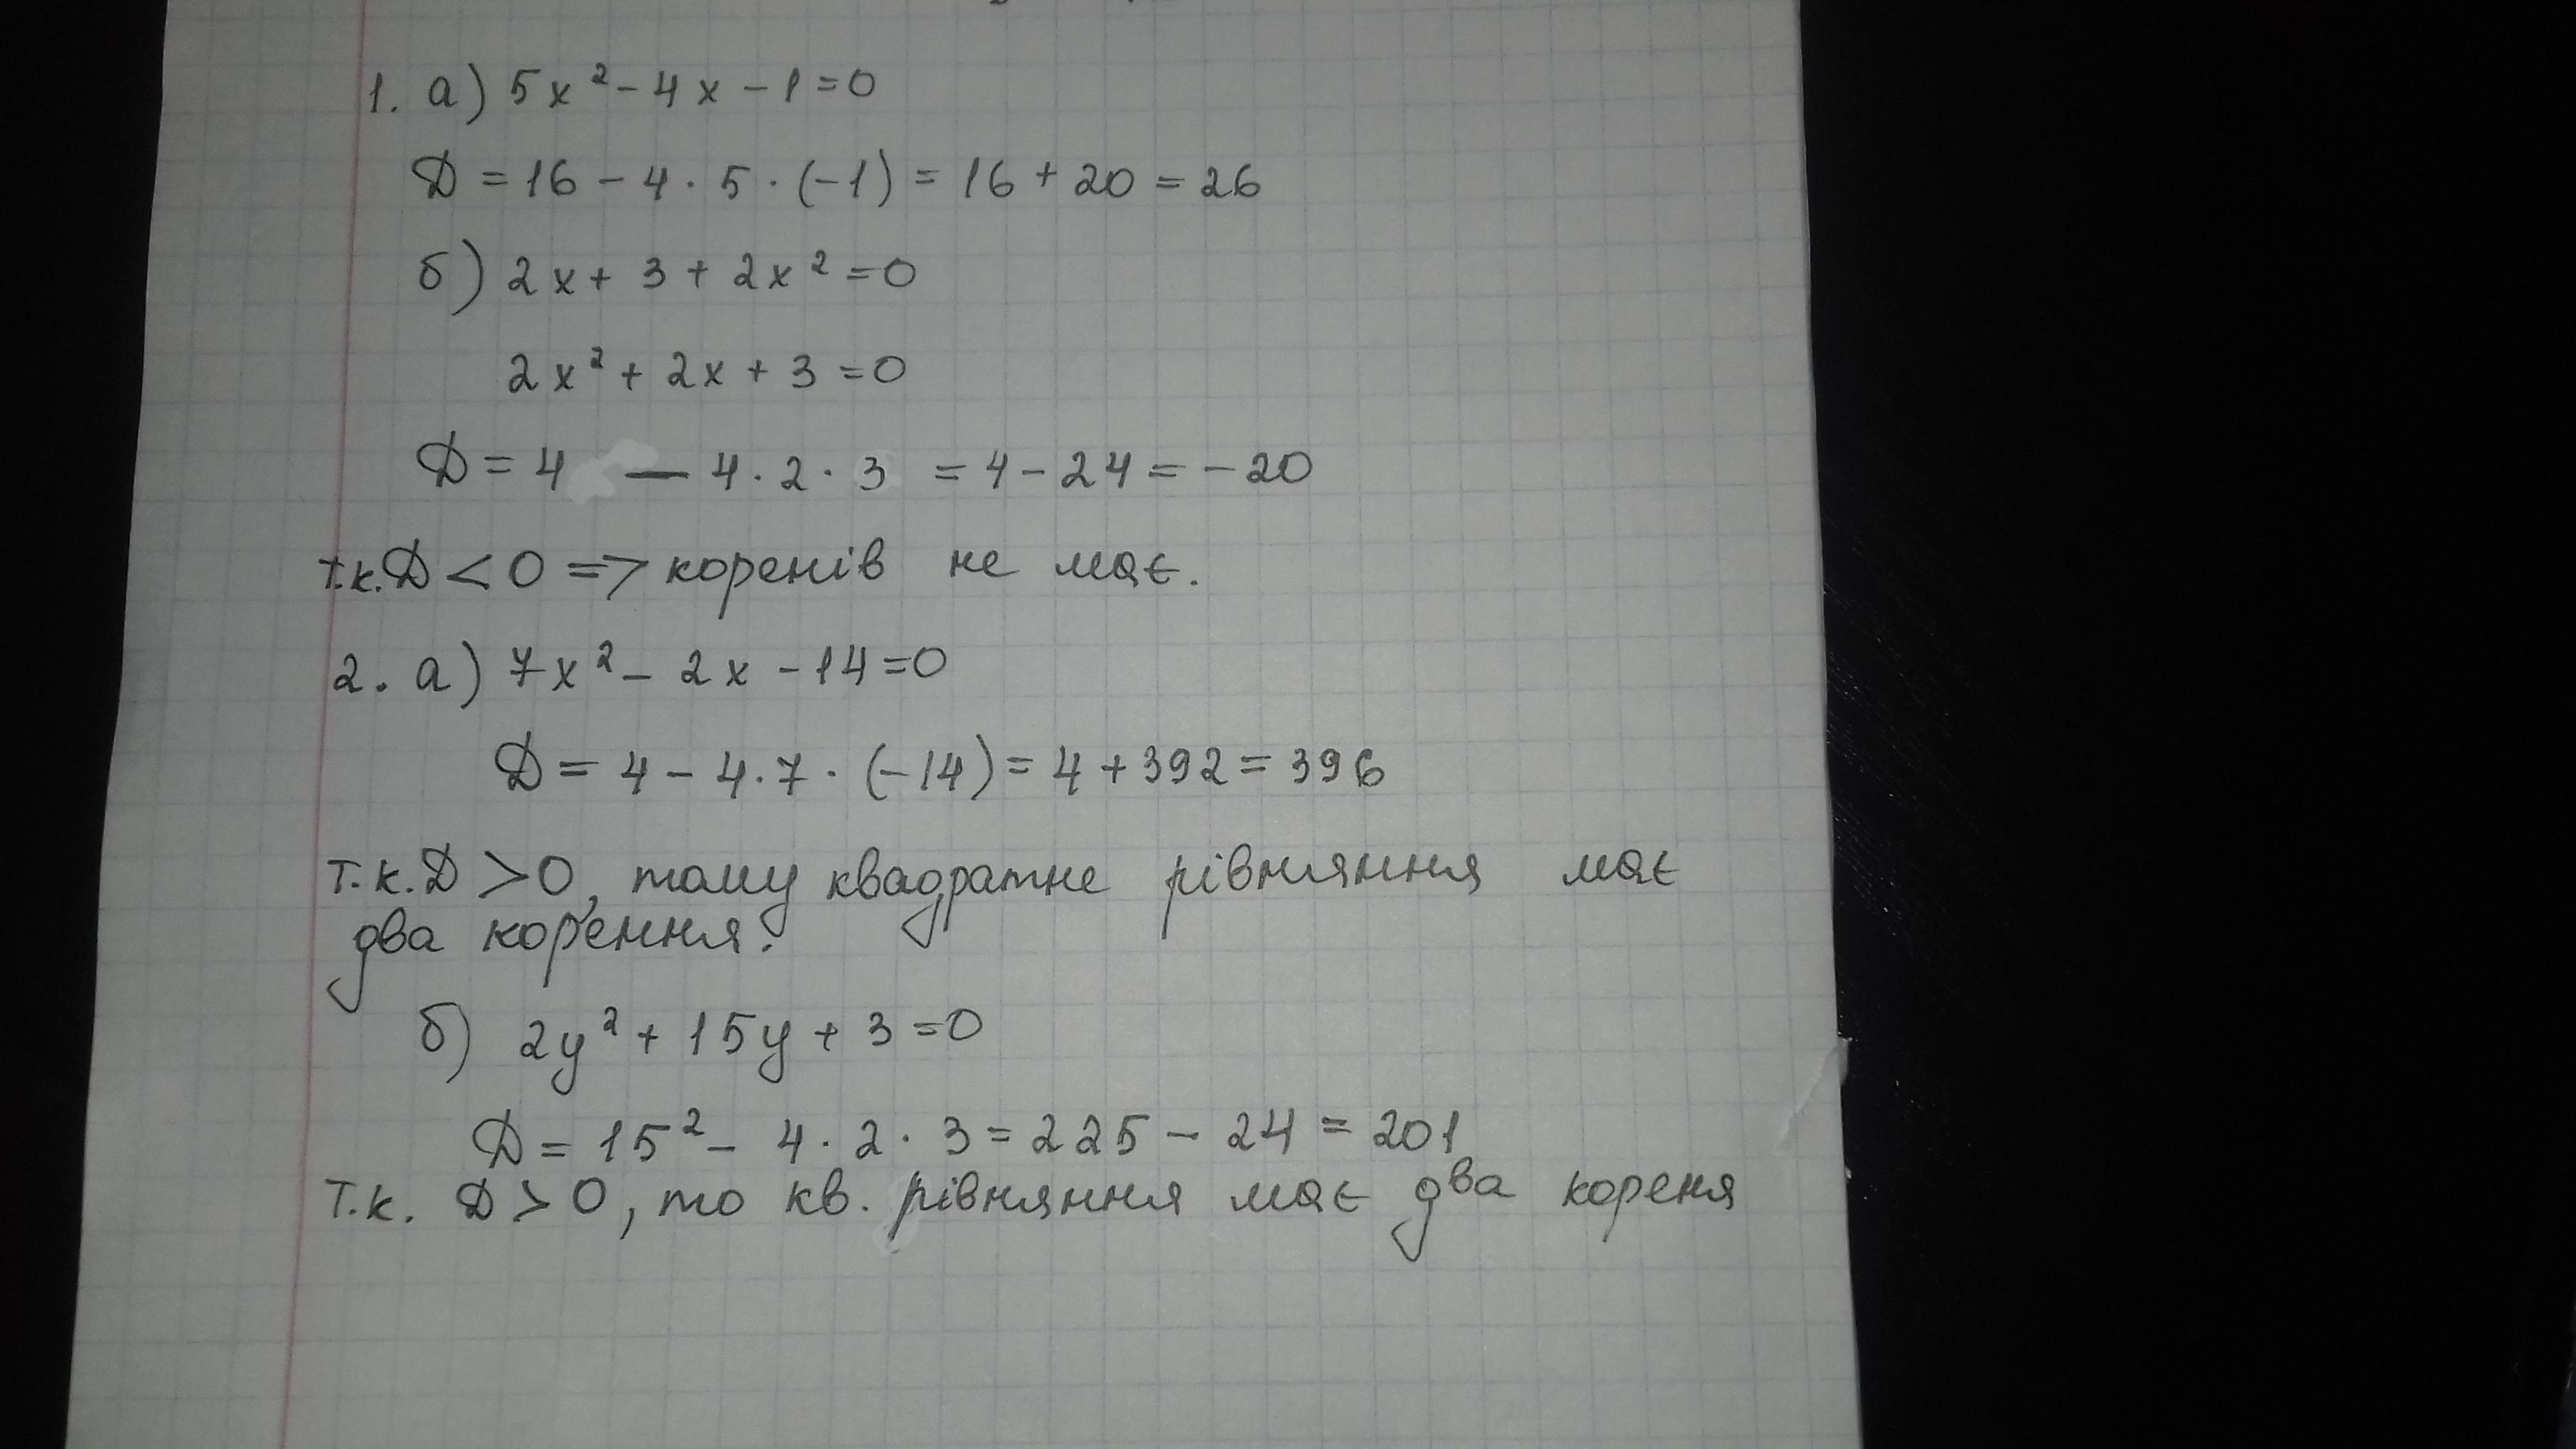 1. а) 5x² - 4x - 1 = 0
Д = 16 - 4 · 5 · (-1) = 16 + 20 = 26
б) 2x + 3 + 2x² = 0
2x² + 2x + 3 = 0
Д = 4 — 4 · 2 · 3 = 4 - 24 = -20
т.к. Д < 0 => коренів не має.
2. а) 7x² - 2x - 14 = 0
Д = 4 - 4 · 7 · (-14) = 4 + 392 = 396
т.к. Д > 0, тому квадратне рівняння має
два корення.
б) 2y² + 15y + 3 = 0
Д = 15² - 4 · 2 · 3 = 225 - 24 = 201
т.к. Д > 0, то кв. рівняння має два кореня